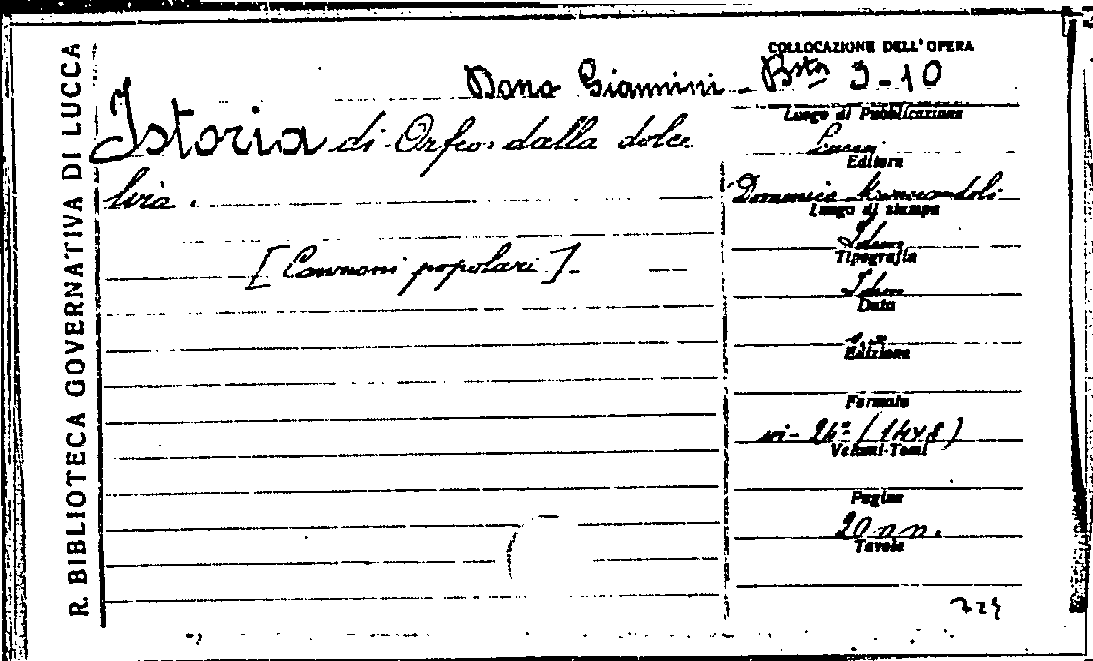 R. BIBLIOTECA GOVERNATIVA DI LUCCA
COLLOCAZIONE DELL'OPERA
Dono Giannini - Bsta 3-10
Istoria di Orfeo dalla dolce
lira.
[Canzoni popolari].
Luogo di Pubblicazione
Lucca
Editore
Domenico Marescandoli
Luogo di stampa
Idem
Tipografia
Idem
Data
s.a.
Edizione
Formato
in-24º (14x8)
Volumi-Tomi
Pagine
20 nn.
Tavole
729